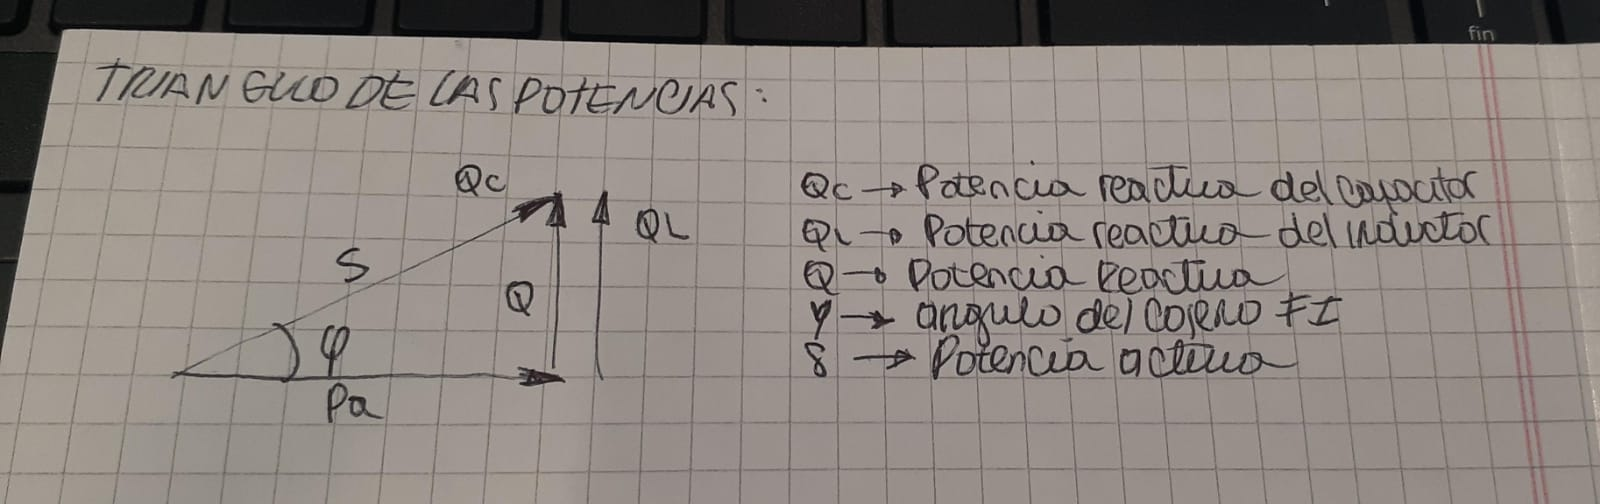 fin
TRIANGULO DE LAS POTENCIAS:
Qc
QL
S
Q
φ
Pa
Qc → Potencia reactiva del capacitor
QL → Potencia reactiva del inductor
Q → Potencia Reactiva
φ → angulo del coseno FI
S → Potencia activa